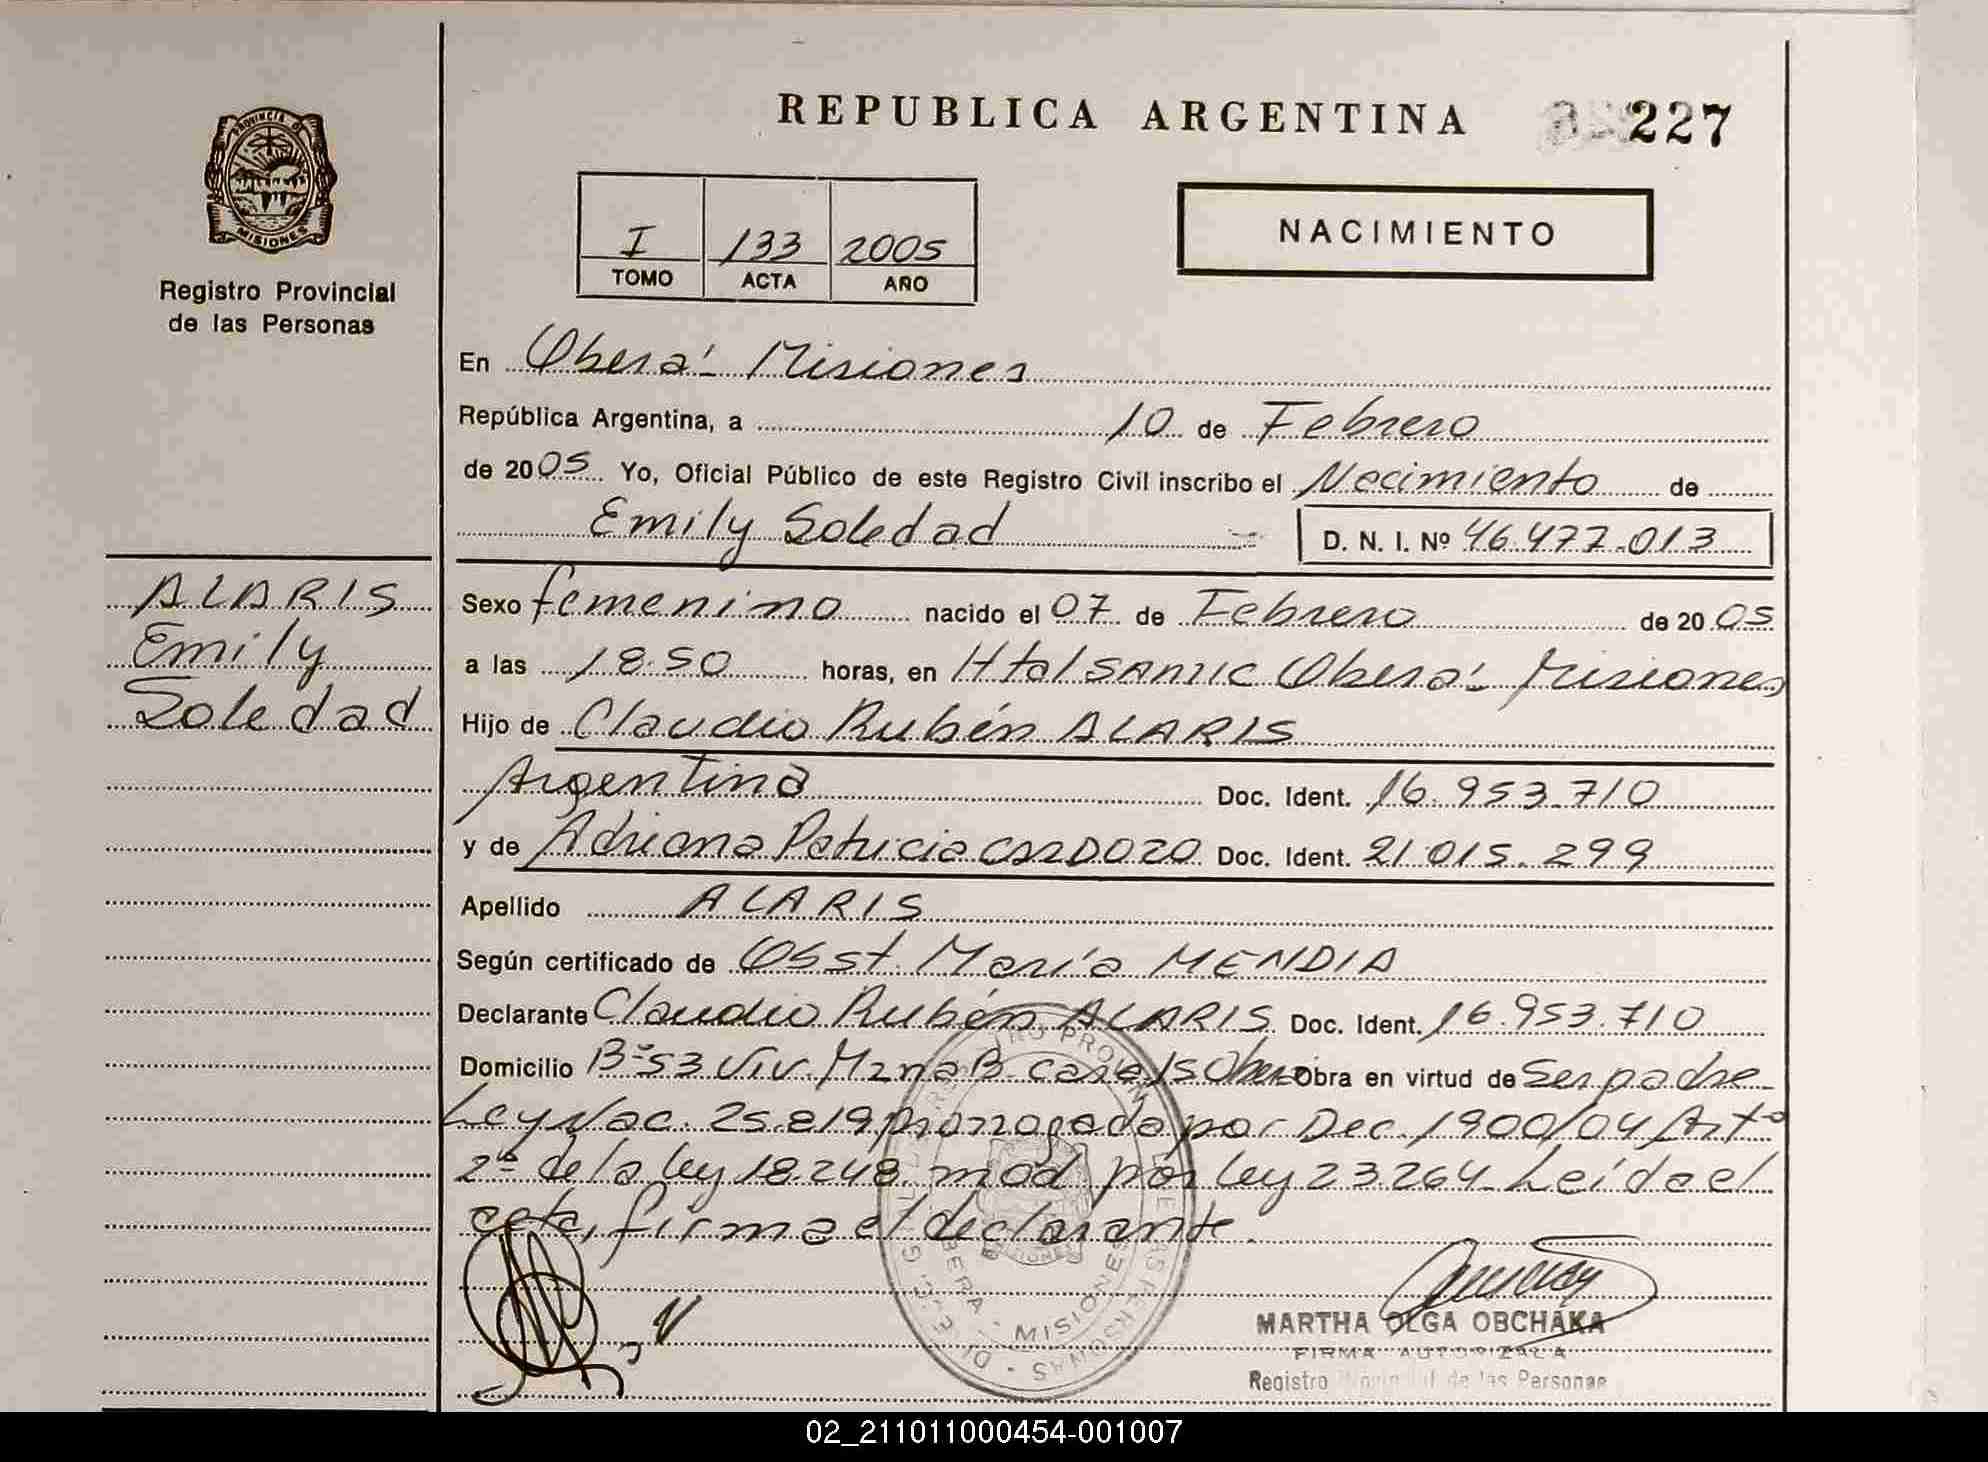 REPUBLICA ARGENTINA 227
PROVINCIA D
MISIONES
Registro Provincial
de las Personas
I 133 2005
TOMO ACTA AÑO
NACIMIENTO
En Oberá - Misiones
República Argentina, a 10 de Febrero
de 2005 Yo, Oficial Público de este Registro Civil inscribo el Nacimiento de
Emily Soledad D. N. I. Nº 46.477.013
ALARIS
Emily
Soledad
Sexo femenino nacido el 07 de Febrero de 2005
a las 18.50 horas, en Htal SAMIC Oberá - Misiones
Hijo de Claudio Rubén ALARIS
Argentina Doc. Ident. 16.953.710
y de Adriana Patricia CARDOZO Doc. Ident. 21.015.299
Apellido ALARIS
Según certificado de Obst. María MENDIA
Declarante Claudio Rubén ALARIS Doc. Ident. 16.953.710
Domicilio Bº 53 Viv. Mzna B casa 15 Oberá Obra en virtud de Ser padre
Ley Nac. 25.819 prorrogada por Dec. 1900/04 Artº
2º de la ley 18.248 mod por ley 23.264 - Leída el
acta, firma el declarante.
MISIONES
MARTHA OLGA OBCHAKA
FIRMA AUTORIZADA
Registro Provincial de las Personas
02_211011000454-001007